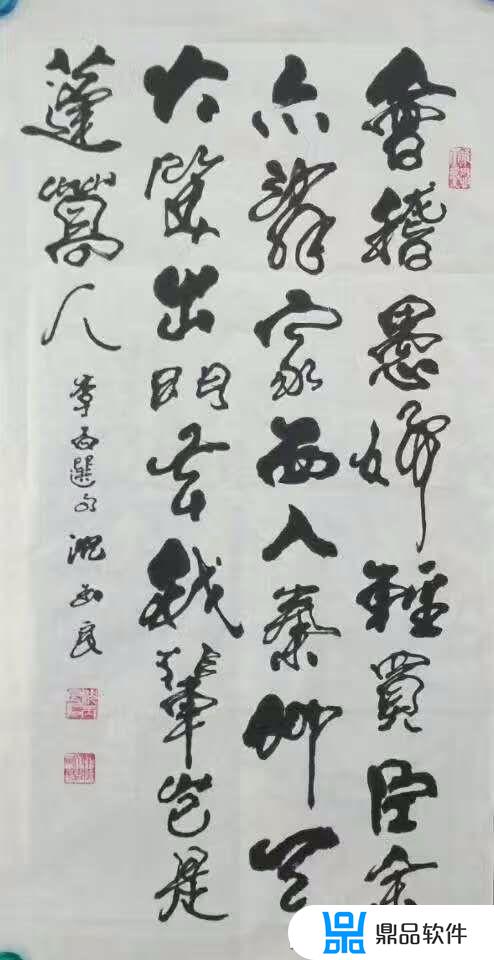 會稽愚婦輕買臣余
亦辭家西入秦仰天
大笑出門去我輩豈是
蓬蒿人
李白選句
鼎品软件